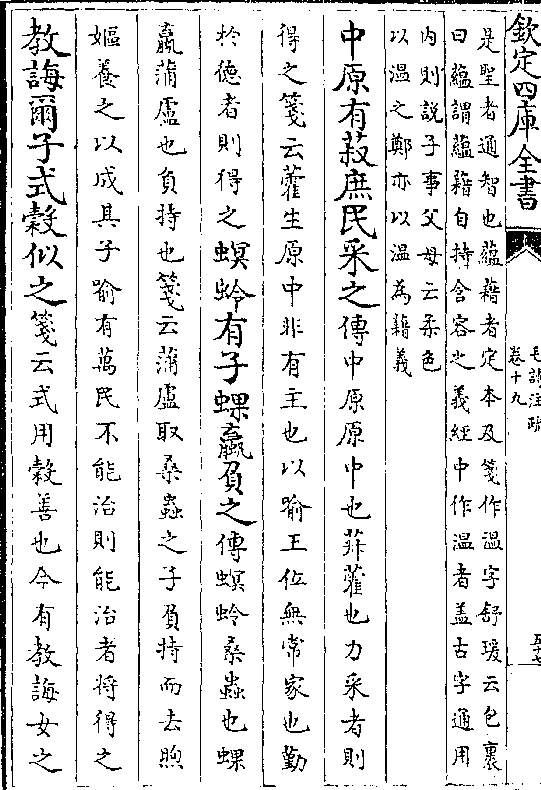 欽定四庫全書
毛詩注疏
卷十九
是聖者通智也蘊藉者定本及箋作溫字舒瑗云包裹
曰蘊謂蘊藉自持含容之義經中作溫者盖古字通用
内則説子事父母云柔色
以溫之鄭亦以溫為藉義
中原有菽庶民采之傳中原原中也菽藿也力采者則
得之箋云藿生原中非有主也以喻王位無常家也勤
於德者則得之螟蛉有子蜾蠃負之傳螟蛉桑蟲也蜾
蠃蒲盧也負持也箋云蒲盧取桑蟲之子負持而去煦
嫗養之以成其子喻有萬民不能治則能治者將得之
教誨爾子式穀似之箋云式用穀善也今有教誨女之